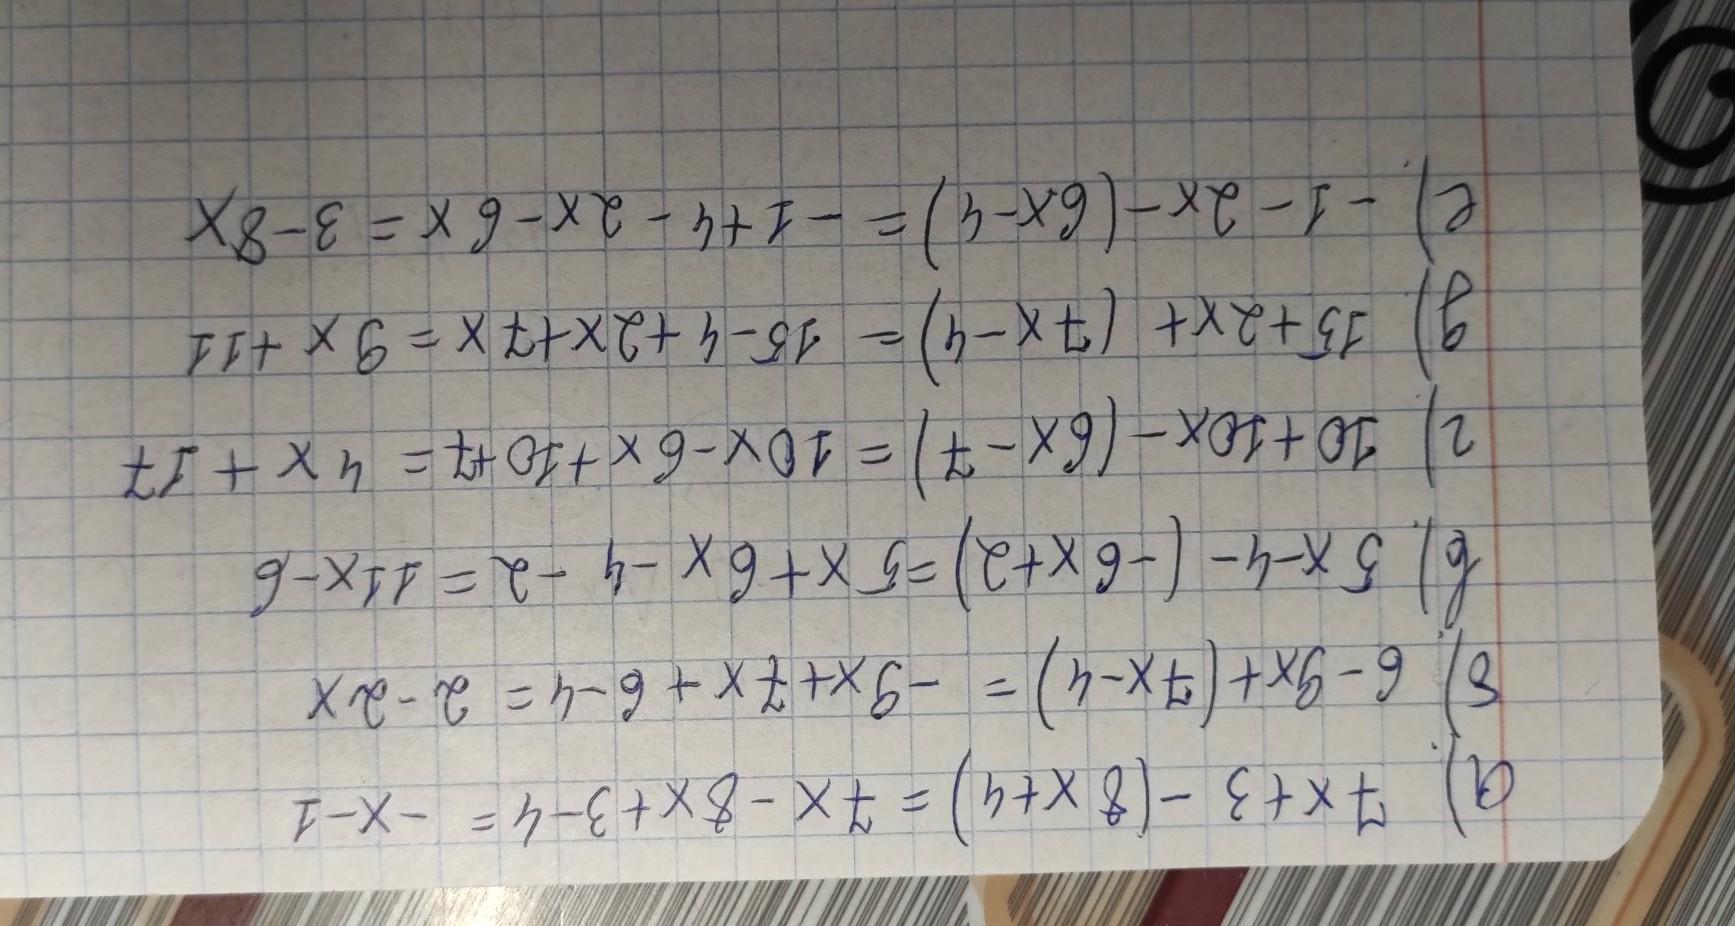 а) 7x+3-(8x+4)=7x-8x+3-4=-x-1
б) 6-9x+(7x-4)=-9x+7x+6-4=2-2x
в) 5x-4-(-6x+2)=5x+6x-4-2=11x-6
г) 10+10x-(6x-7)=10x-6x+10+7=4x+17
д) 15+2x+(7x-4)=15-4+2x+7x=9x+11
е) -1-2x-(6x-4)=-1+4-2x-6x=3-8x